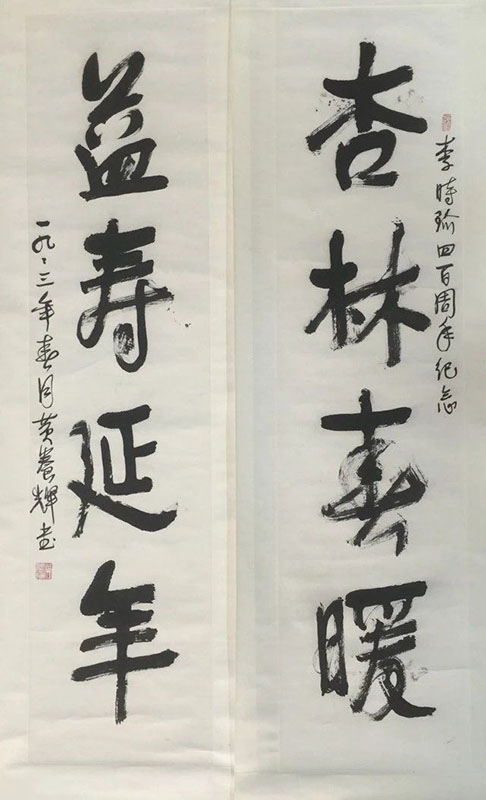 李時珍四百周年纪念
杏林春暖
益寿延年
一九八三年春月黄養輝书